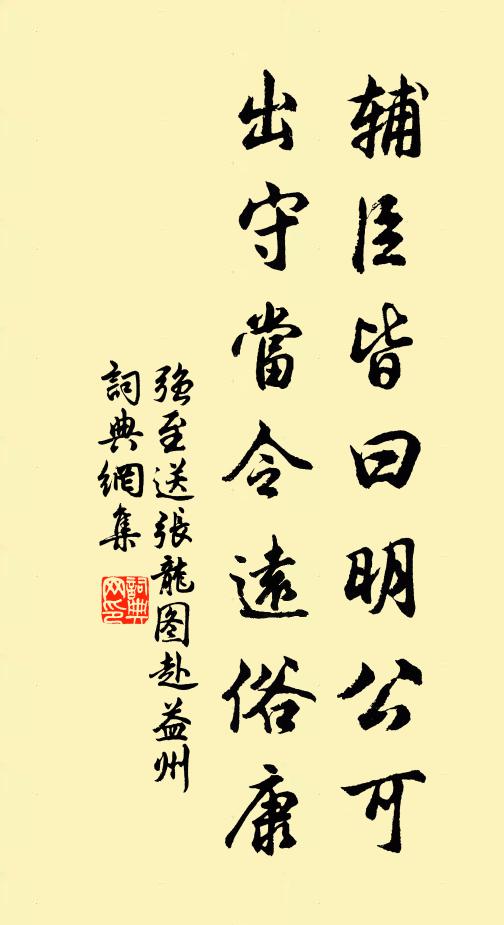 辅臣皆曰明公可
出守當令遠俗康
强至送張龍图赴益州
詞典網集
詞典
网印